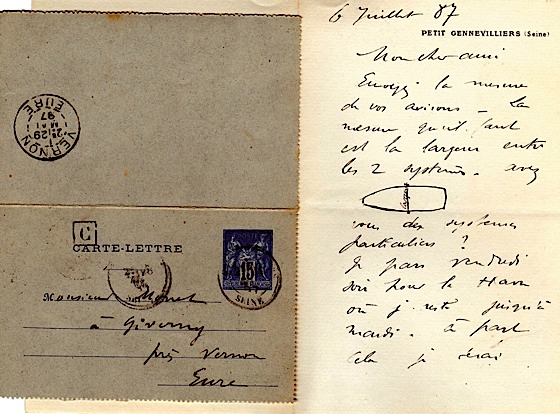 VERNON
2E 29
MAI
97
EURE
C
CARTE-LETTRE
15
SEINE
Monsieur Monet
à Giverny
près Vernon
Eure
6 Juillet 87
PETIT GENNEVILLIERS (Seine)
Mon cher ami
Envoyez la mesure
de vos avirons – La
mesure qu'il faut
est la largeur entre
les 2 systèmes. avez
largeur
vous des systemes
particuliers ?
Je pars vendredi
soir pour le Havre
où je reste jusqu'à
mardi. à part
cela je serai